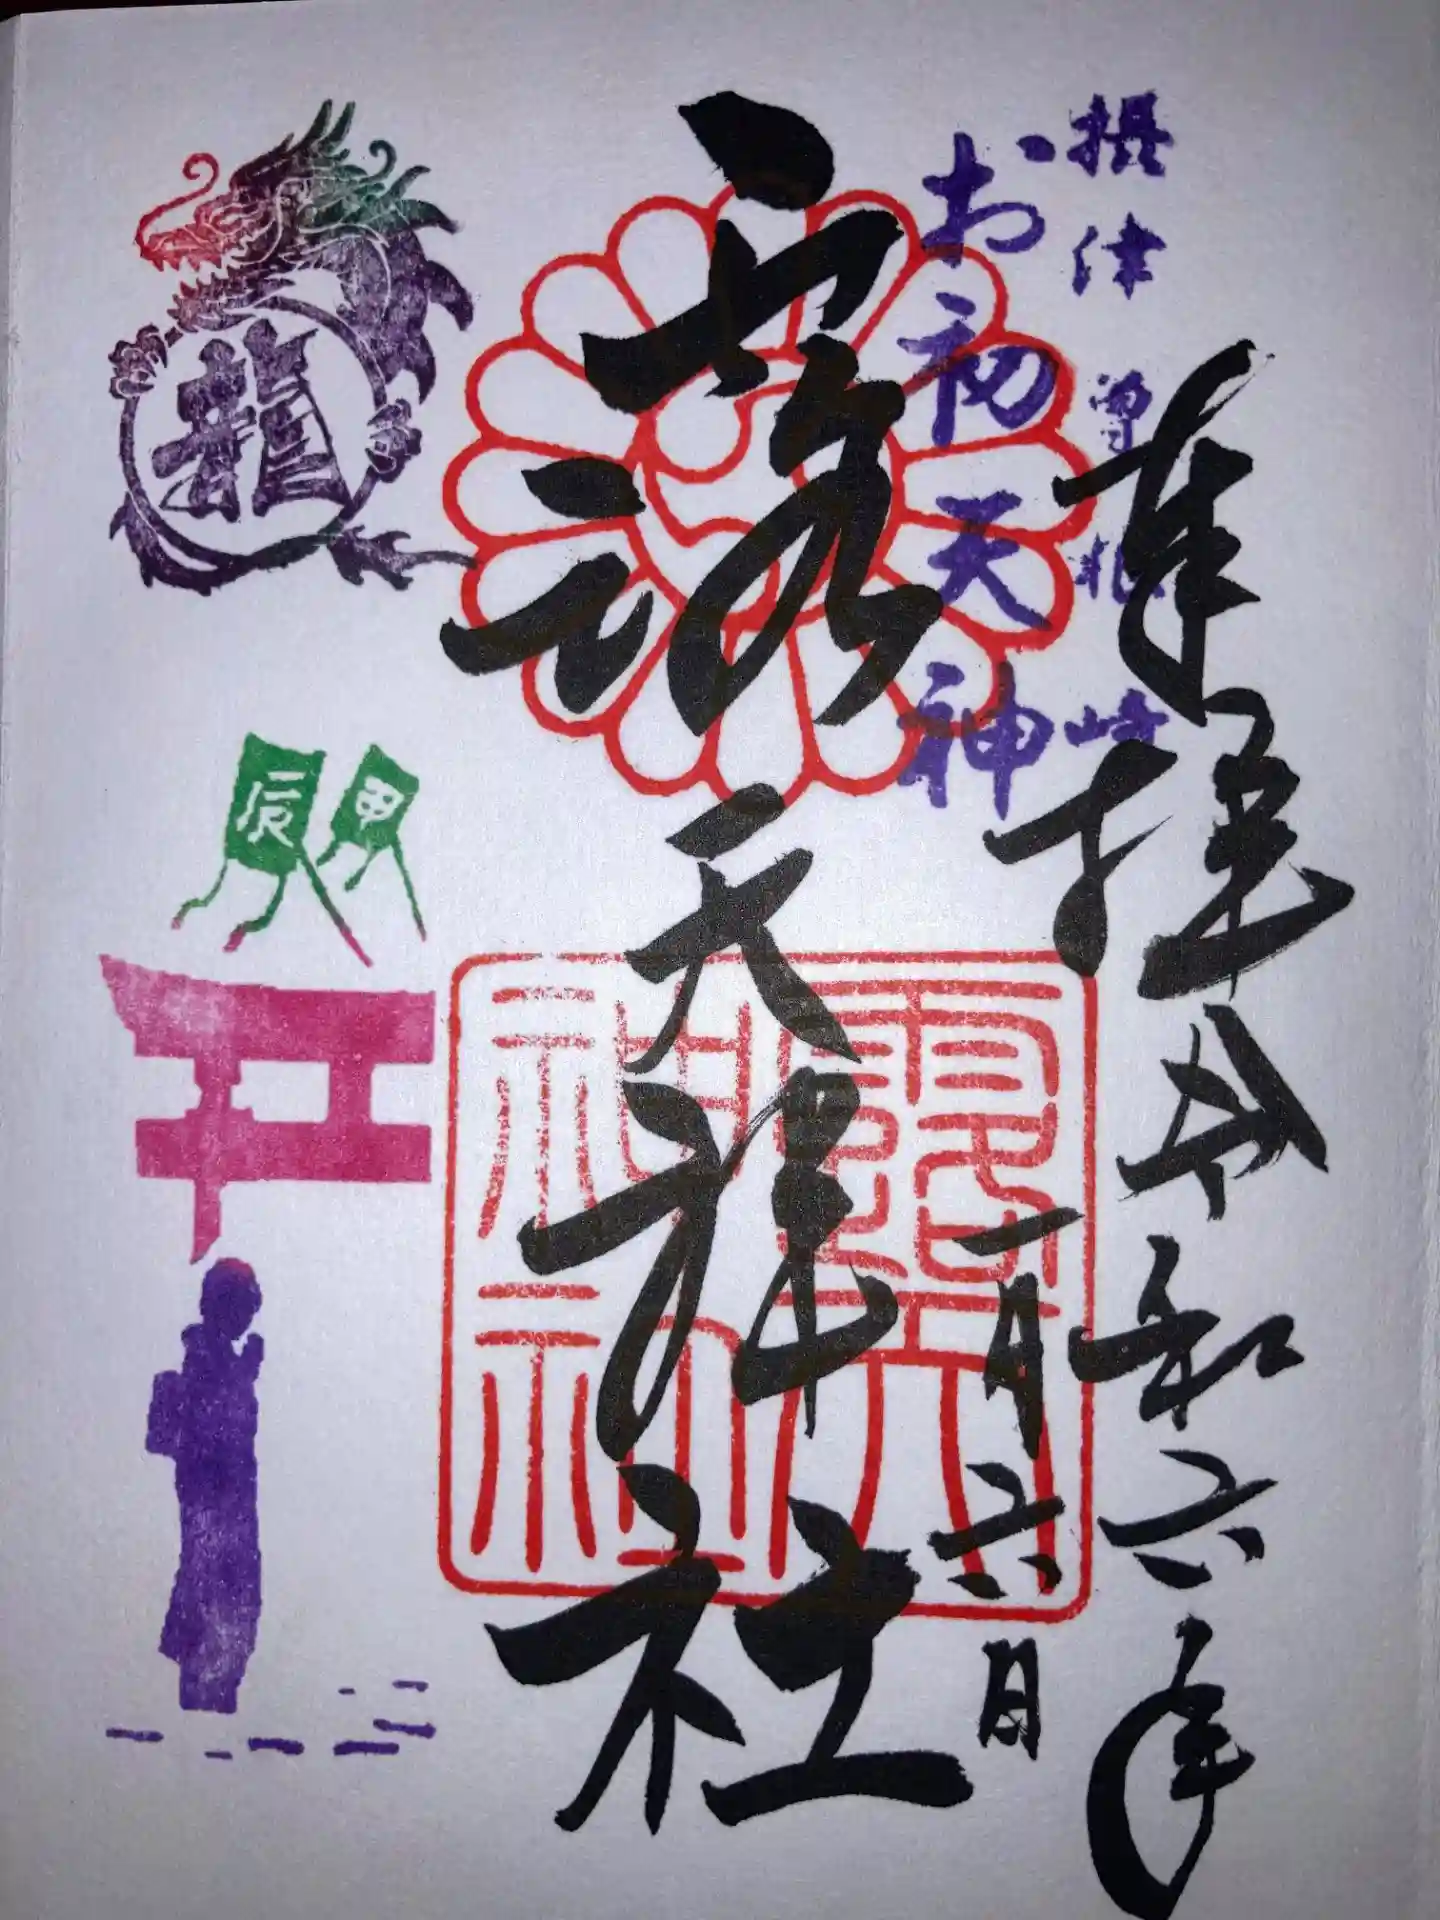 摂津 曽根崎
お初天神
奉拝 令和六年
一月六日
露天神社
露天
神社
龍
甲
辰